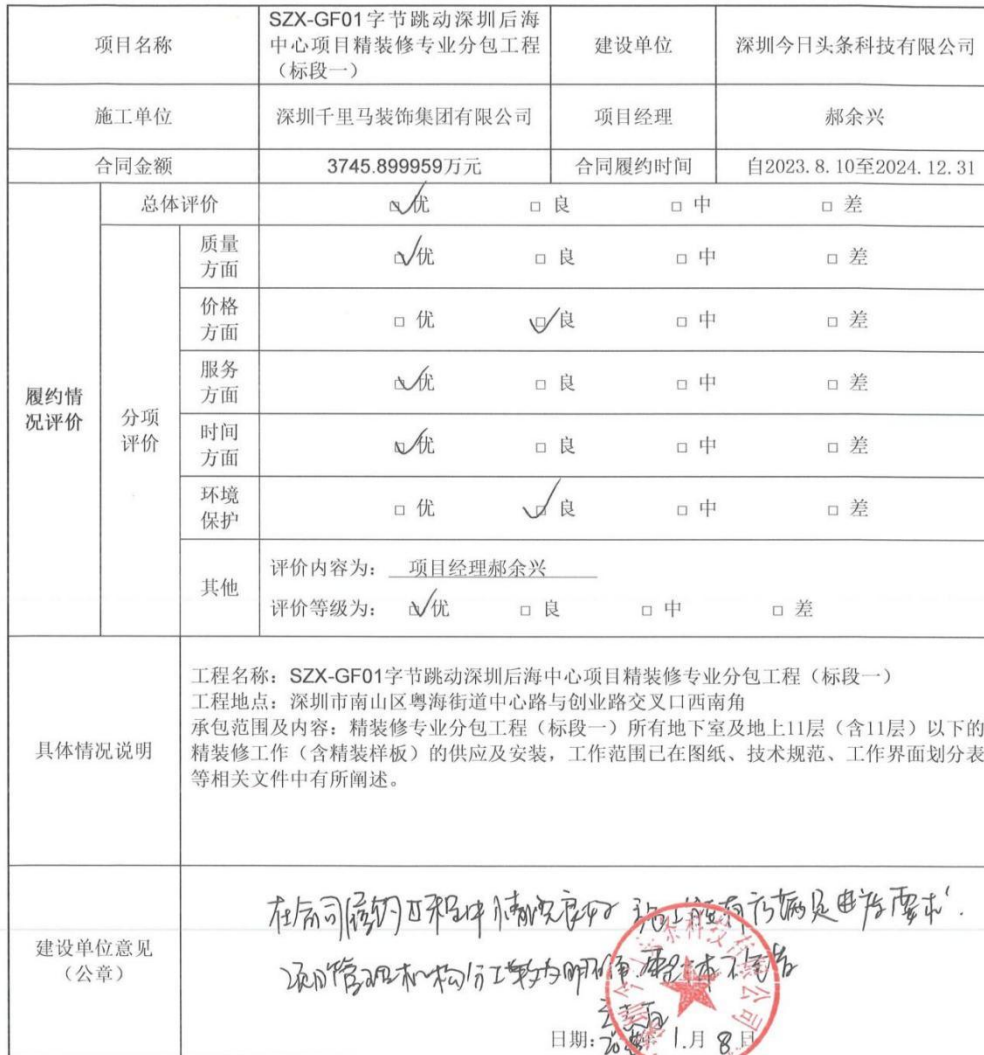 项目名称
SZX-GF01字节跳动深圳后海
中心项目精装修专业分包工程
（标段一）
建设单位
深圳今日头条科技有限公司
施工单位
深圳千里马装饰集团有限公司
项目经理
郝余兴
合同金额
3745.899959万元
合同履约时间
自2023.8.10至2024.12.31
履约情
况评价
总体评价
☑优 □ 良 □ 中 □ 差
分项
评价
质量
方面
☑优 □ 良 □ 中 □ 差
价格
方面
□ 优 ☑良 □ 中 □ 差
服务
方面
☑优 □ 良 □ 中 □ 差
时间
方面
☑优 □ 良 □ 中 □ 差
环境
保护
□ 优 ☑良 □ 中 □ 差
其他
评价内容为：项目经理郝余兴
评价等级为：☑优 □ 良 □ 中 □ 差
具体情况说明
工程名称：SZX-GF01字节跳动深圳后海中心项目精装修专业分包工程（标段一）
工程地点：深圳市南山区粤海街道中心路与创业路交叉口西南角
承包范围及内容：精装修专业分包工程（标段一）所有地下室及地上11层（含11层）以下的
精装修工作（含精装样板）的供应及安装，工作范围已在图纸、技术规范、工作界面划分表
等相关文件中有所阐述。
建设单位意见
（公章）
在合同履约过程中情况良好 满足进度要求
项目管理机构分工较为明确
日期： 1.月 8 日